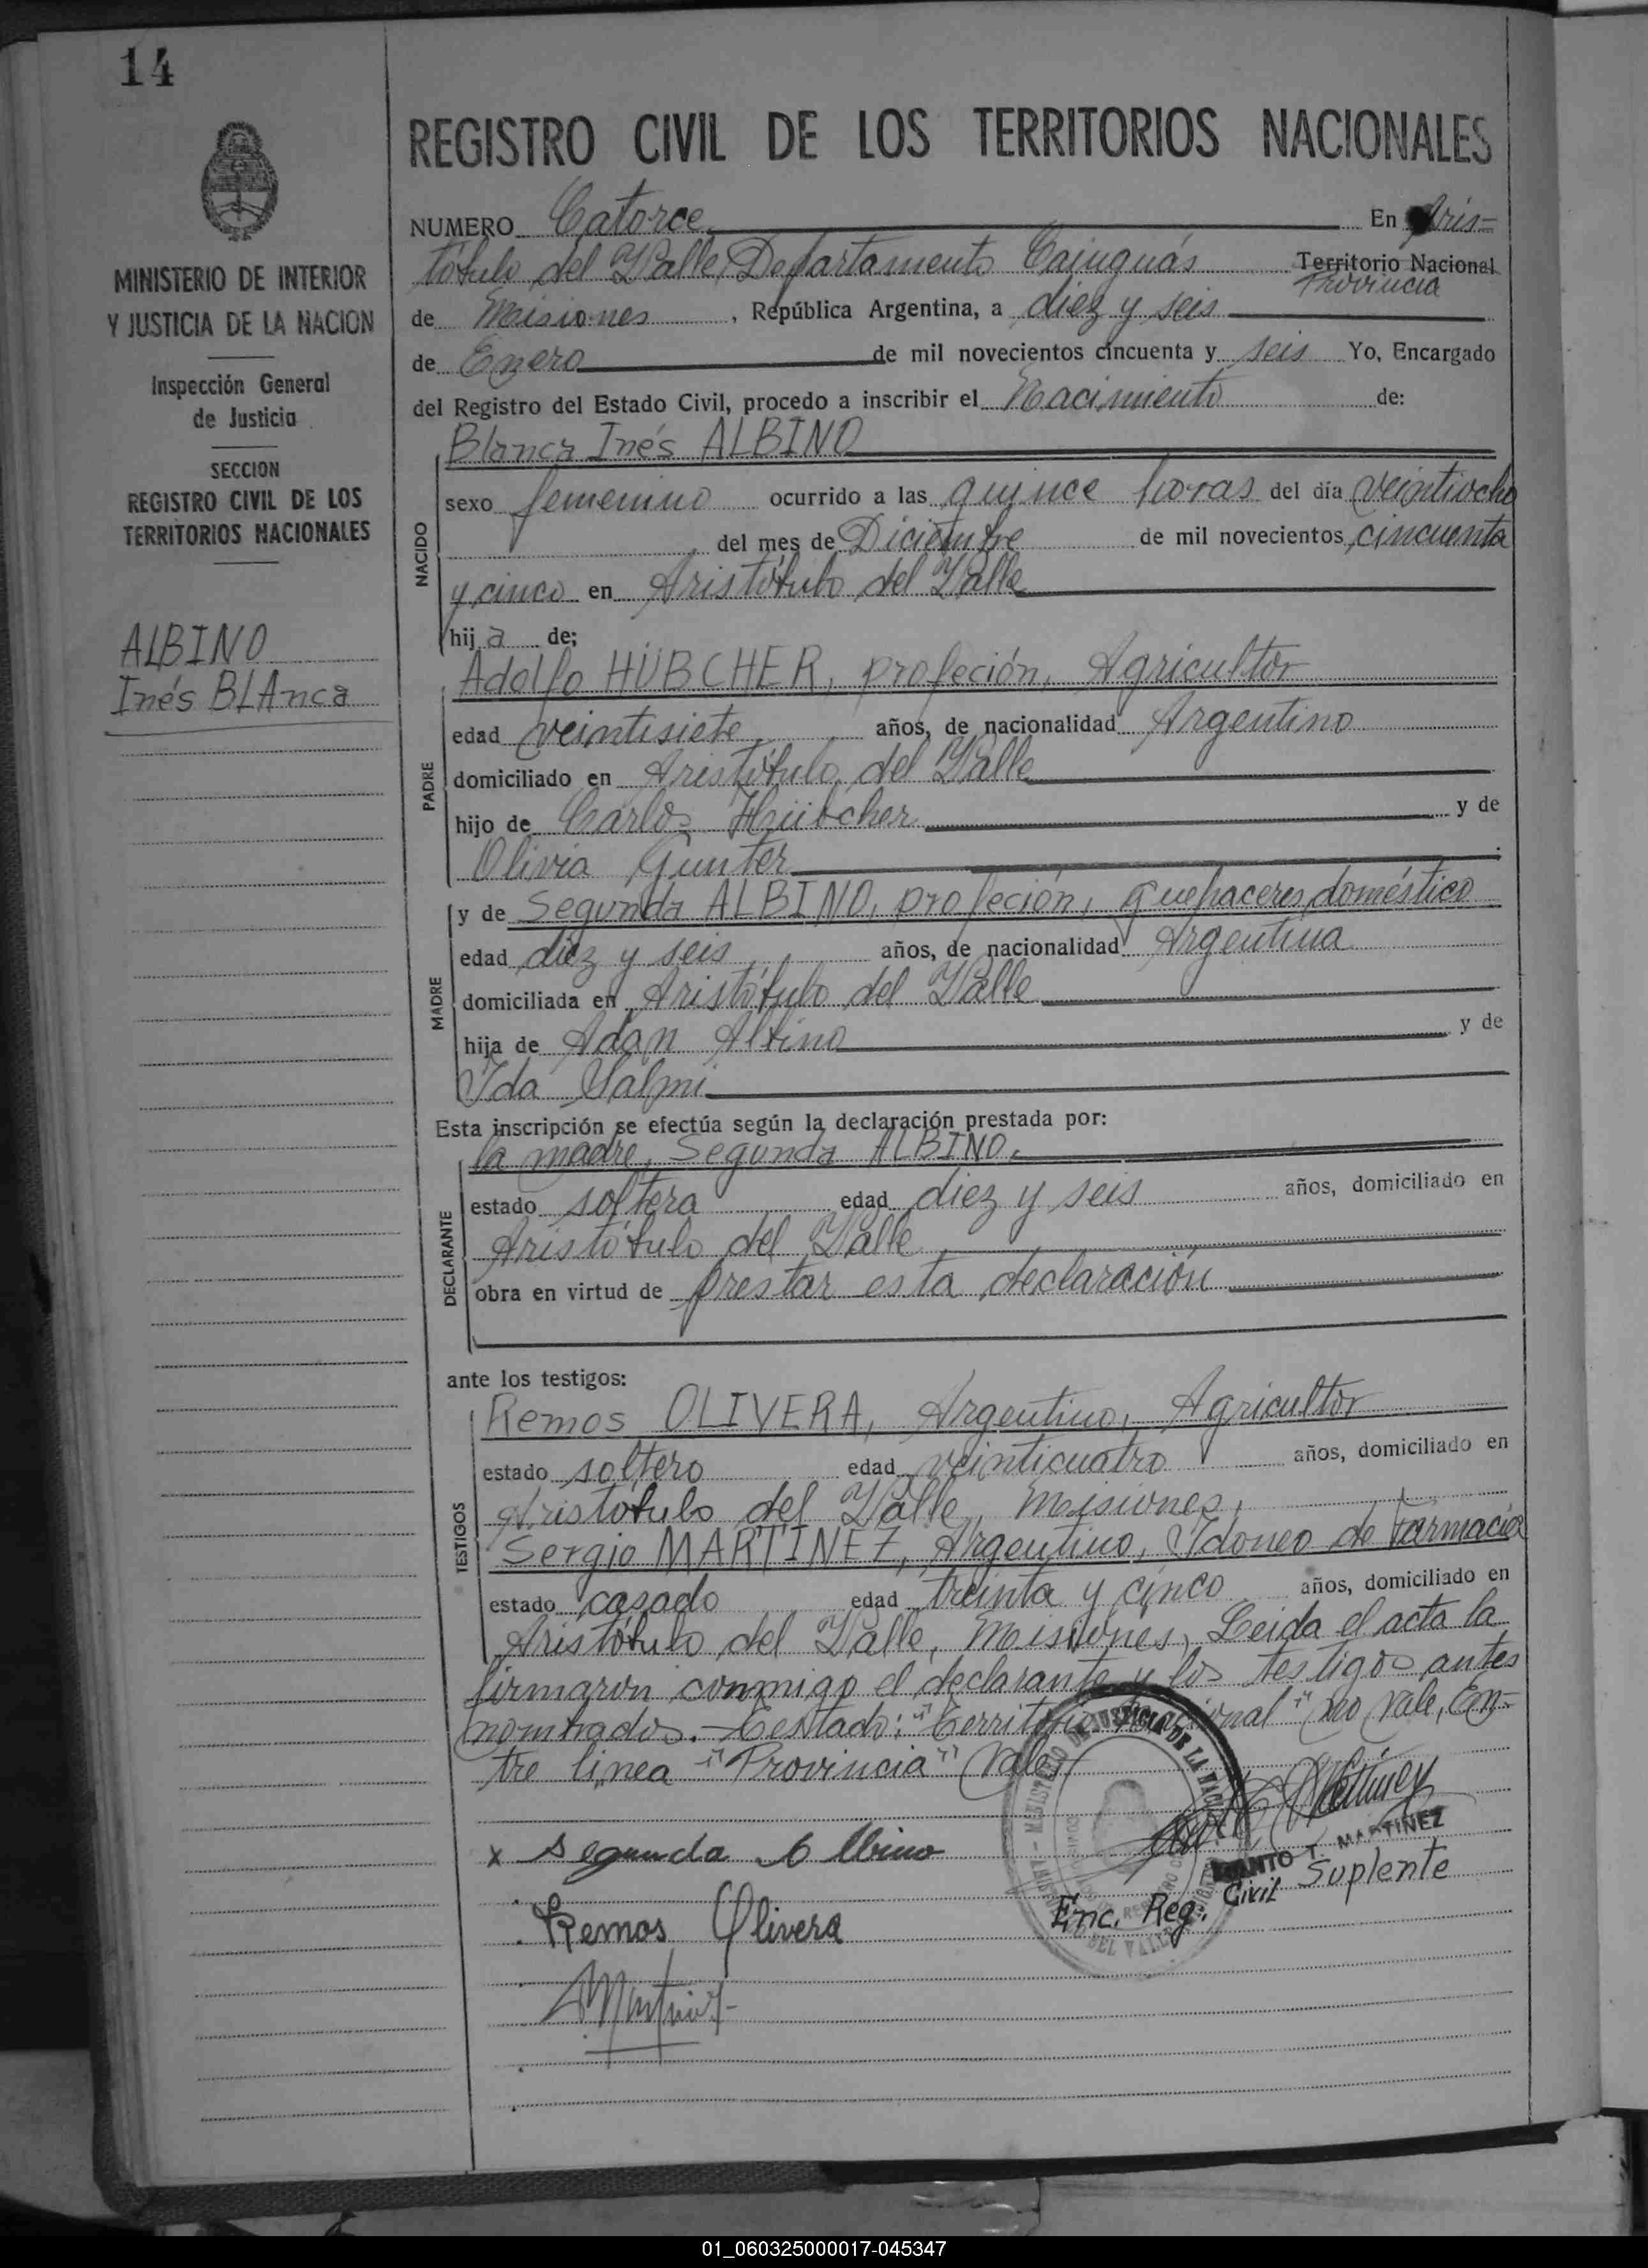 14
REGISTRO CIVIL DE LOS TERRITORIOS NACIONALES
MINISTERIO DE INTERIOR
Y JUSTICIA DE LA NACION
Inspección General
de Justicia
SECCION
REGISTRO CIVIL DE LOS
TERRITORIOS NACIONALES
ALBINO
Inés BLAnca
NUMERO Catorce En Aris-
tóbulo del Valle, Departamento Cainguás Territorio Nacional
Provincia
de Misiones, República Argentina, a diez y seis
de Enero de mil novecientos cincuenta y seis Yo, Encargado
del Registro del Estado Civil, procedo a inscribir el Nacimiento de:
NACIDO
Blanca Inés ALBINO
sexo femenino ocurrido a las quince horas del día veintiocho
del mes de Diciembre de mil novecientos cincuenta
y cinco en Aristóbulo del Valle
hij a de;
PADRE
Adolfo HÜBCHER, profeción, Agricultor
edad veintisiete años, de nacionalidad Argentino
domiciliado en Aristóbulo del Valle
hijo de Carlos Hüibcher y de
Olivia Gunter
MADRE
y de Segunda ALBINO, profeción, quehaceres doméstico
edad diez y seis años, de nacionalidad Argentina
domiciliada en Aristóbulo del Valle
hija de Adán Albino y de
Ida
Esta inscripción se efectúa según la declaración prestada por:
DECLARANTE
la madre, Segunda ALBINO.
estado soltera edad diez y seis años, domiciliado en
Aristóbulo del Valle
obra en virtud de prestar esta declaración
ante los testigos:
TESTIGOS
Remos OLIVERA, Argentino, Agricultor
estado soltero edad veinticuatro años, domiciliado en
Aristóbulo del Valle, Misiones,
Sergio MARTINEZ, Argentino, Idoneo de Farmacia
estado casado edad treinta y cinco años, domiciliado en
Aristóbulo del Valle, Misiones, Leida el acta la
firmaron conmigo el declarante y los testigos antes
nombrados.- Testado: "Territorio Nacional" no vale, En-
tre linea "Provincia" Vale,
MINISTERIO DE JUSTICIA DE LA NAC
DEL VALLE
x Segunda Albino
T. MARTINEZ
Enc. Reg. Civil Suplente
Remos Olivera
01_060325000017-045347